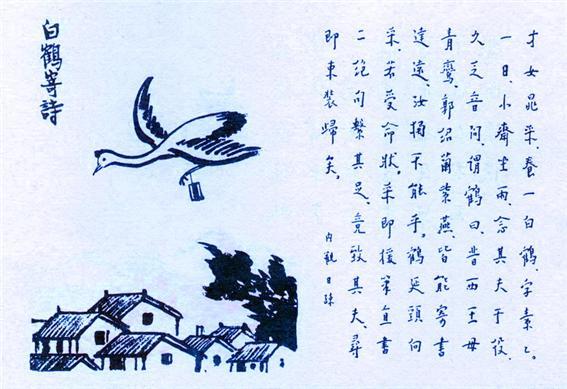 白鶴寄詩
才女晁采、養一白鶴、字素々。
一日、小齋坐雨、念其夫于役、
久乏音問、謂鶴曰、昔西王母
青鸞、郭紹蘭紫燕、皆能寄書
達遠、汝獨不能乎。鶴延頸向
采、若受命狀。采即援筆直書
二絶句繫其足、竟致其夫、尋
即束裝歸矣。
內觀日疏